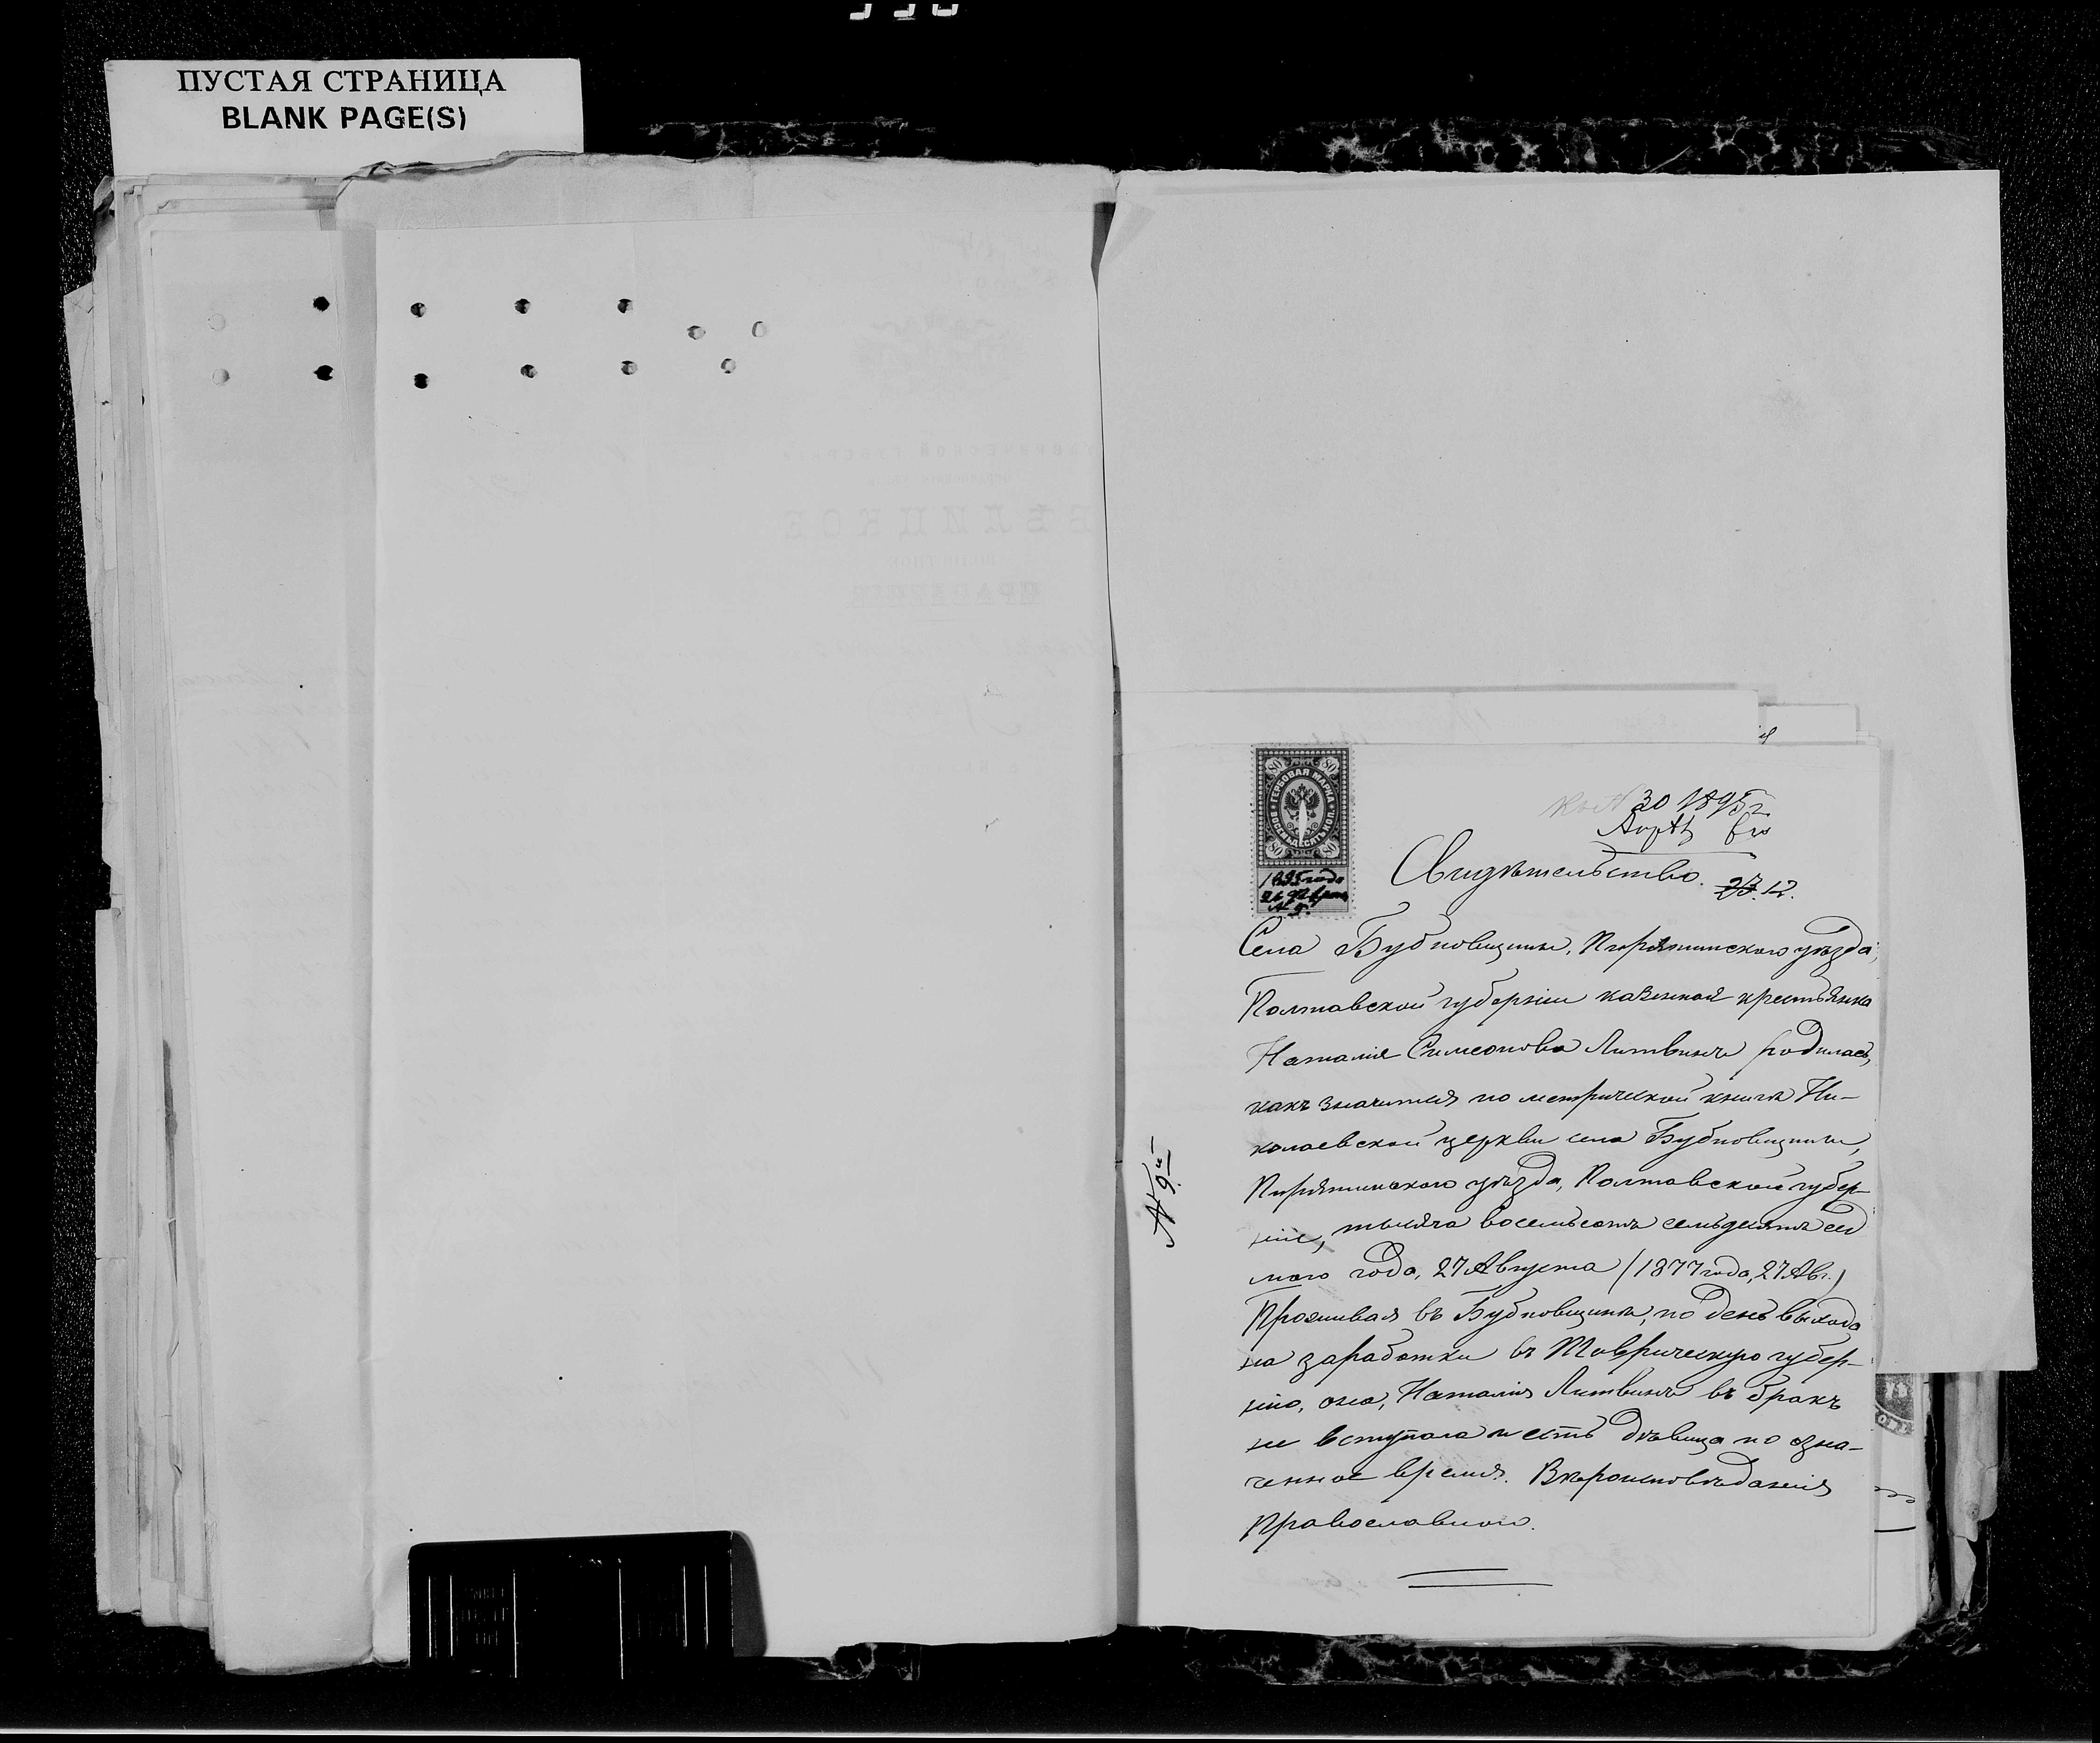 ПУСТАЯ СТРАНИЦА
BLANK PAGE(S)
30 1895 г.
ГЕРБОВАЯ МАРКА
ВОСЕМЬДЕСЯТЪ КОП.
80 80
80 80
1895 года
№ 9.
Свидѣтельство.
27. 12.
Села Бубновщины, Пирятинскаго уѣзда,
Полтавской губерніи казенная крестьянка
Наталія Симеонова Литвинъ родилась,
какъ значится по метрической книгѣ Ни-
колаевской церкви села Бубновщины,
Пирятинскаго уѣзда, Полтавской губер-
ніи, тысяча восемьсотъ семьдесятъ сед
маго года, 27 Августа (1877 года, 27 Авг.)
Проживая въ Бубновщинѣ, по день выхода
на заработки въ Таврическую губер-
нію, она, Наталія Литвинъ въ бракъ
не вступала и есть дѣвица по озна-
ченное время. Вѣроисповѣданія
православнаго.
№ 9й